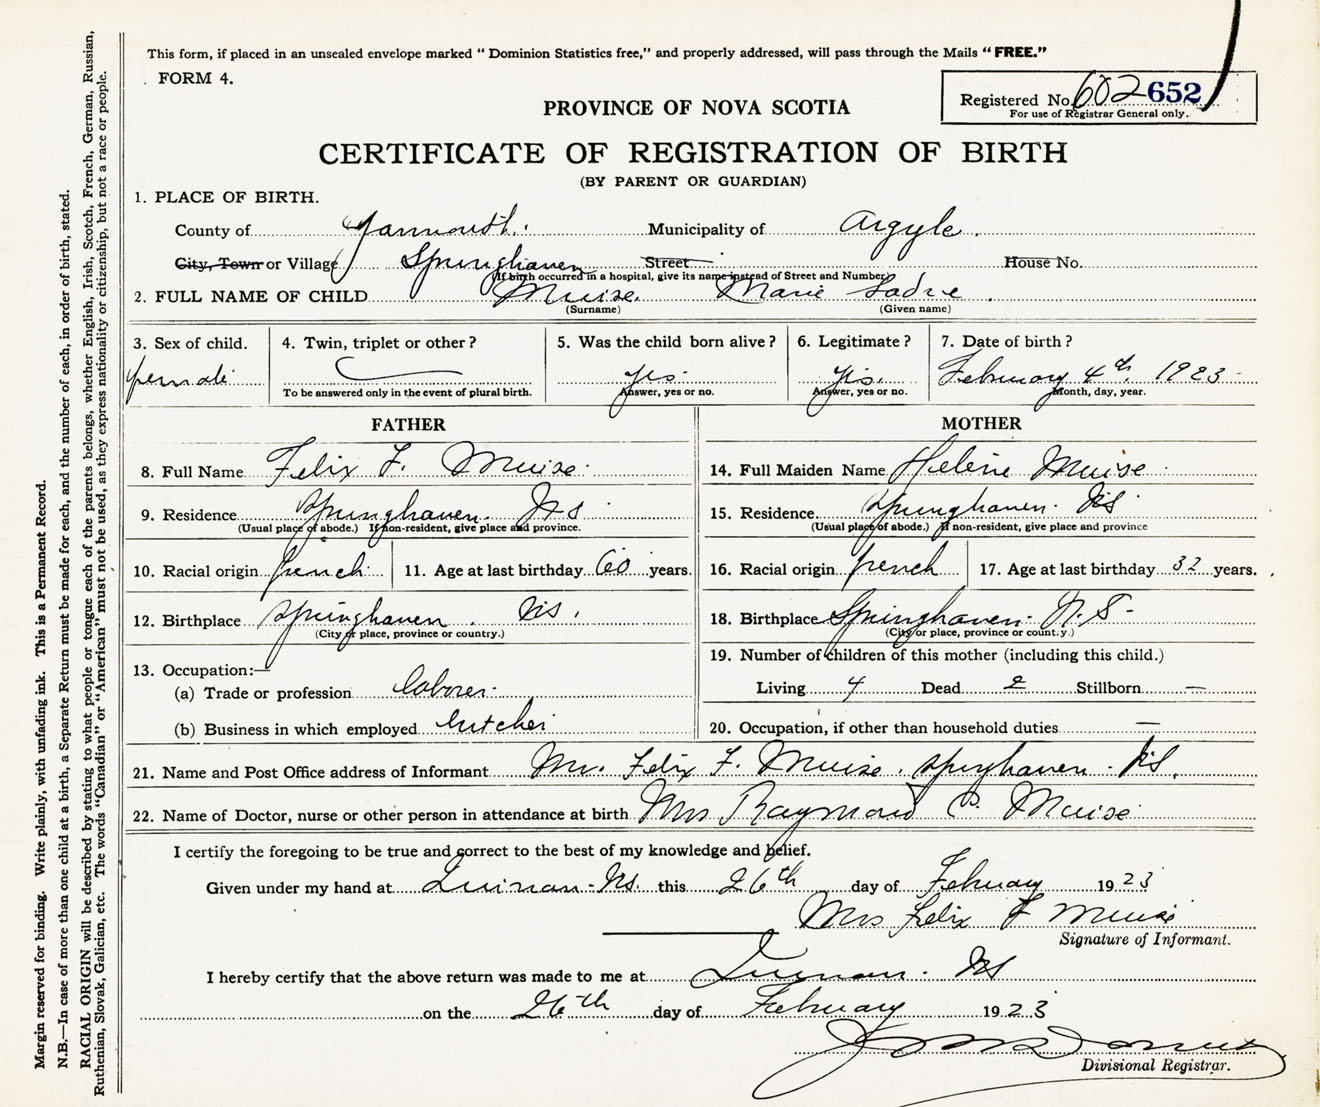 This form, if placed in an unsealed envelope marked “Dominion Statistics free,” and properly addressed, will pass through the Mails “FREE.”
FORM 4.
Registered No. 602652
For use of Registrar General only.
PROVINCE OF NOVA SCOTIA
CERTIFICATE OF REGISTRATION OF BIRTH
(BY PARENT OR GUARDIAN)
1. PLACE OF BIRTH.
County of Yarmouth. Municipality of Argyle.
City, Town or Village Springhaven Street House No.
(If birth occurred in a hospital, give its name instead of Street and Number)
2. FULL NAME OF CHILD Muise. Marie
(Surname) (Given name)
3. Sex of child. 4. Twin, triplet or other? 5. Was the child born alive? 6. Legitimate? 7. Date of birth?
female yes yes. February 4th, 1923
To be answered only in the event of plural birth. Answer, yes or no. Answer, yes or no. Month, day, year.
FATHER MOTHER
8. Full Name Felix F. Muise. 14. Full Maiden Name Helene Muise
9. Residence Springhaven. N.S 15. Residence. Springhaven. N.S
(Usual place of abode.) If non-resident, give place and province. (Usual place of abode.) If non-resident, give place and province
10. Racial origin french 11. Age at last birthday 60 years. 16. Racial origin french 17. Age at last birthday 32 years.
12. Birthplace Springhaven. N.S. 18. Birthplace Springhaven. N.S-
(City or place, province or country.) (City or place, province or count.y.)
13. Occupation:—
19. Number of children of this mother (including this child.)
(a) Trade or profession laborer. Living 4 Dead 2 Stillborn —
(b) Business in which employed butcher 20. Occupation, if other than household duties —
21. Name and Post Office address of Informant Mr. Felix F. Muise. Springhaven. N.S.
22. Name of Doctor, nurse or other person in attendance at birth Mrs Raymond Muise
I certify the foregoing to be true and correct to the best of my knowledge and belief.
Given under my hand at Quinan. N.S. this 26th day of February 1923
Mrs Felix F Muise
Signature of Informant.
I hereby certify that the above return was made to me at Quinan. NS
on the 26th day of February 1923
Divisional Registrar.
Margin reserved for binding. Write plainly, with unfading ink. This is a Permanent Record.
N.B.—In case of more than one child at a birth, a Separate Return must be made for each, and the number of each, in order of birth, stated.
RACIAL ORIGIN will be described by stating to what people or tongue each of the parents belongs, whether English, Irish, Scotch, French, German, Russian,
Ruthenian, Slovak, Galician, etc. The words “Canadian” or “American” must not be used, as they express nationality or citizenship, but not a race or people.